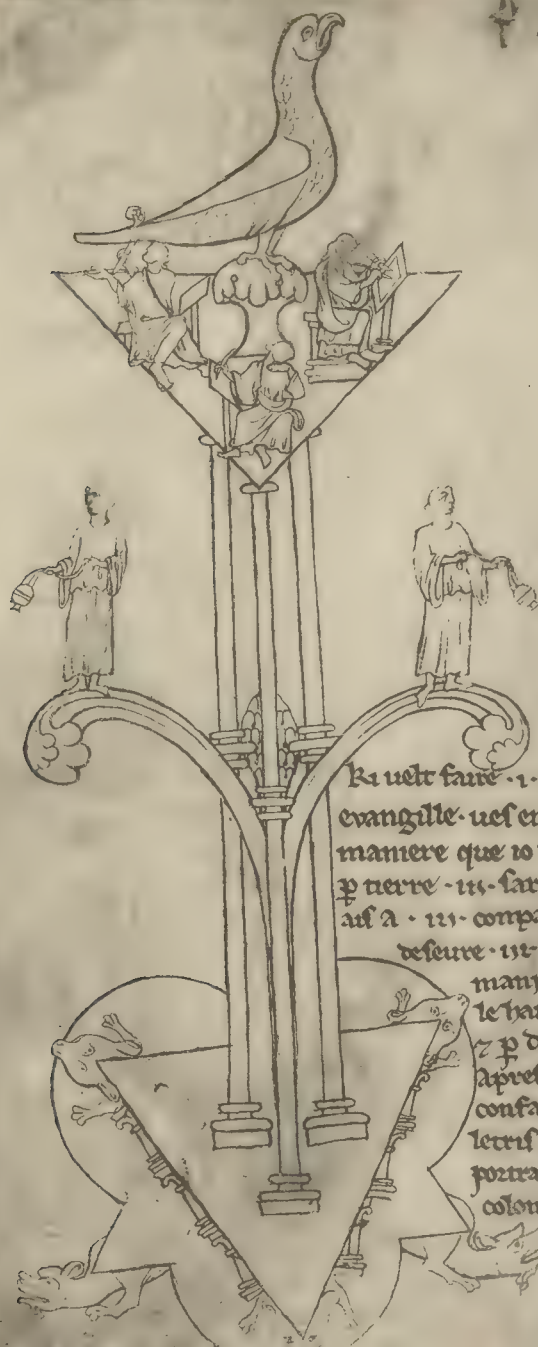 Ki uelt faire · i ·
evangille · ues en
maniere que io
ꝑ tierre · iii · sar
ais a · iii · compa
deseure · iii ·
mani
le hau
⁊ ꝑ d
apres
confa
letris
portra
colom